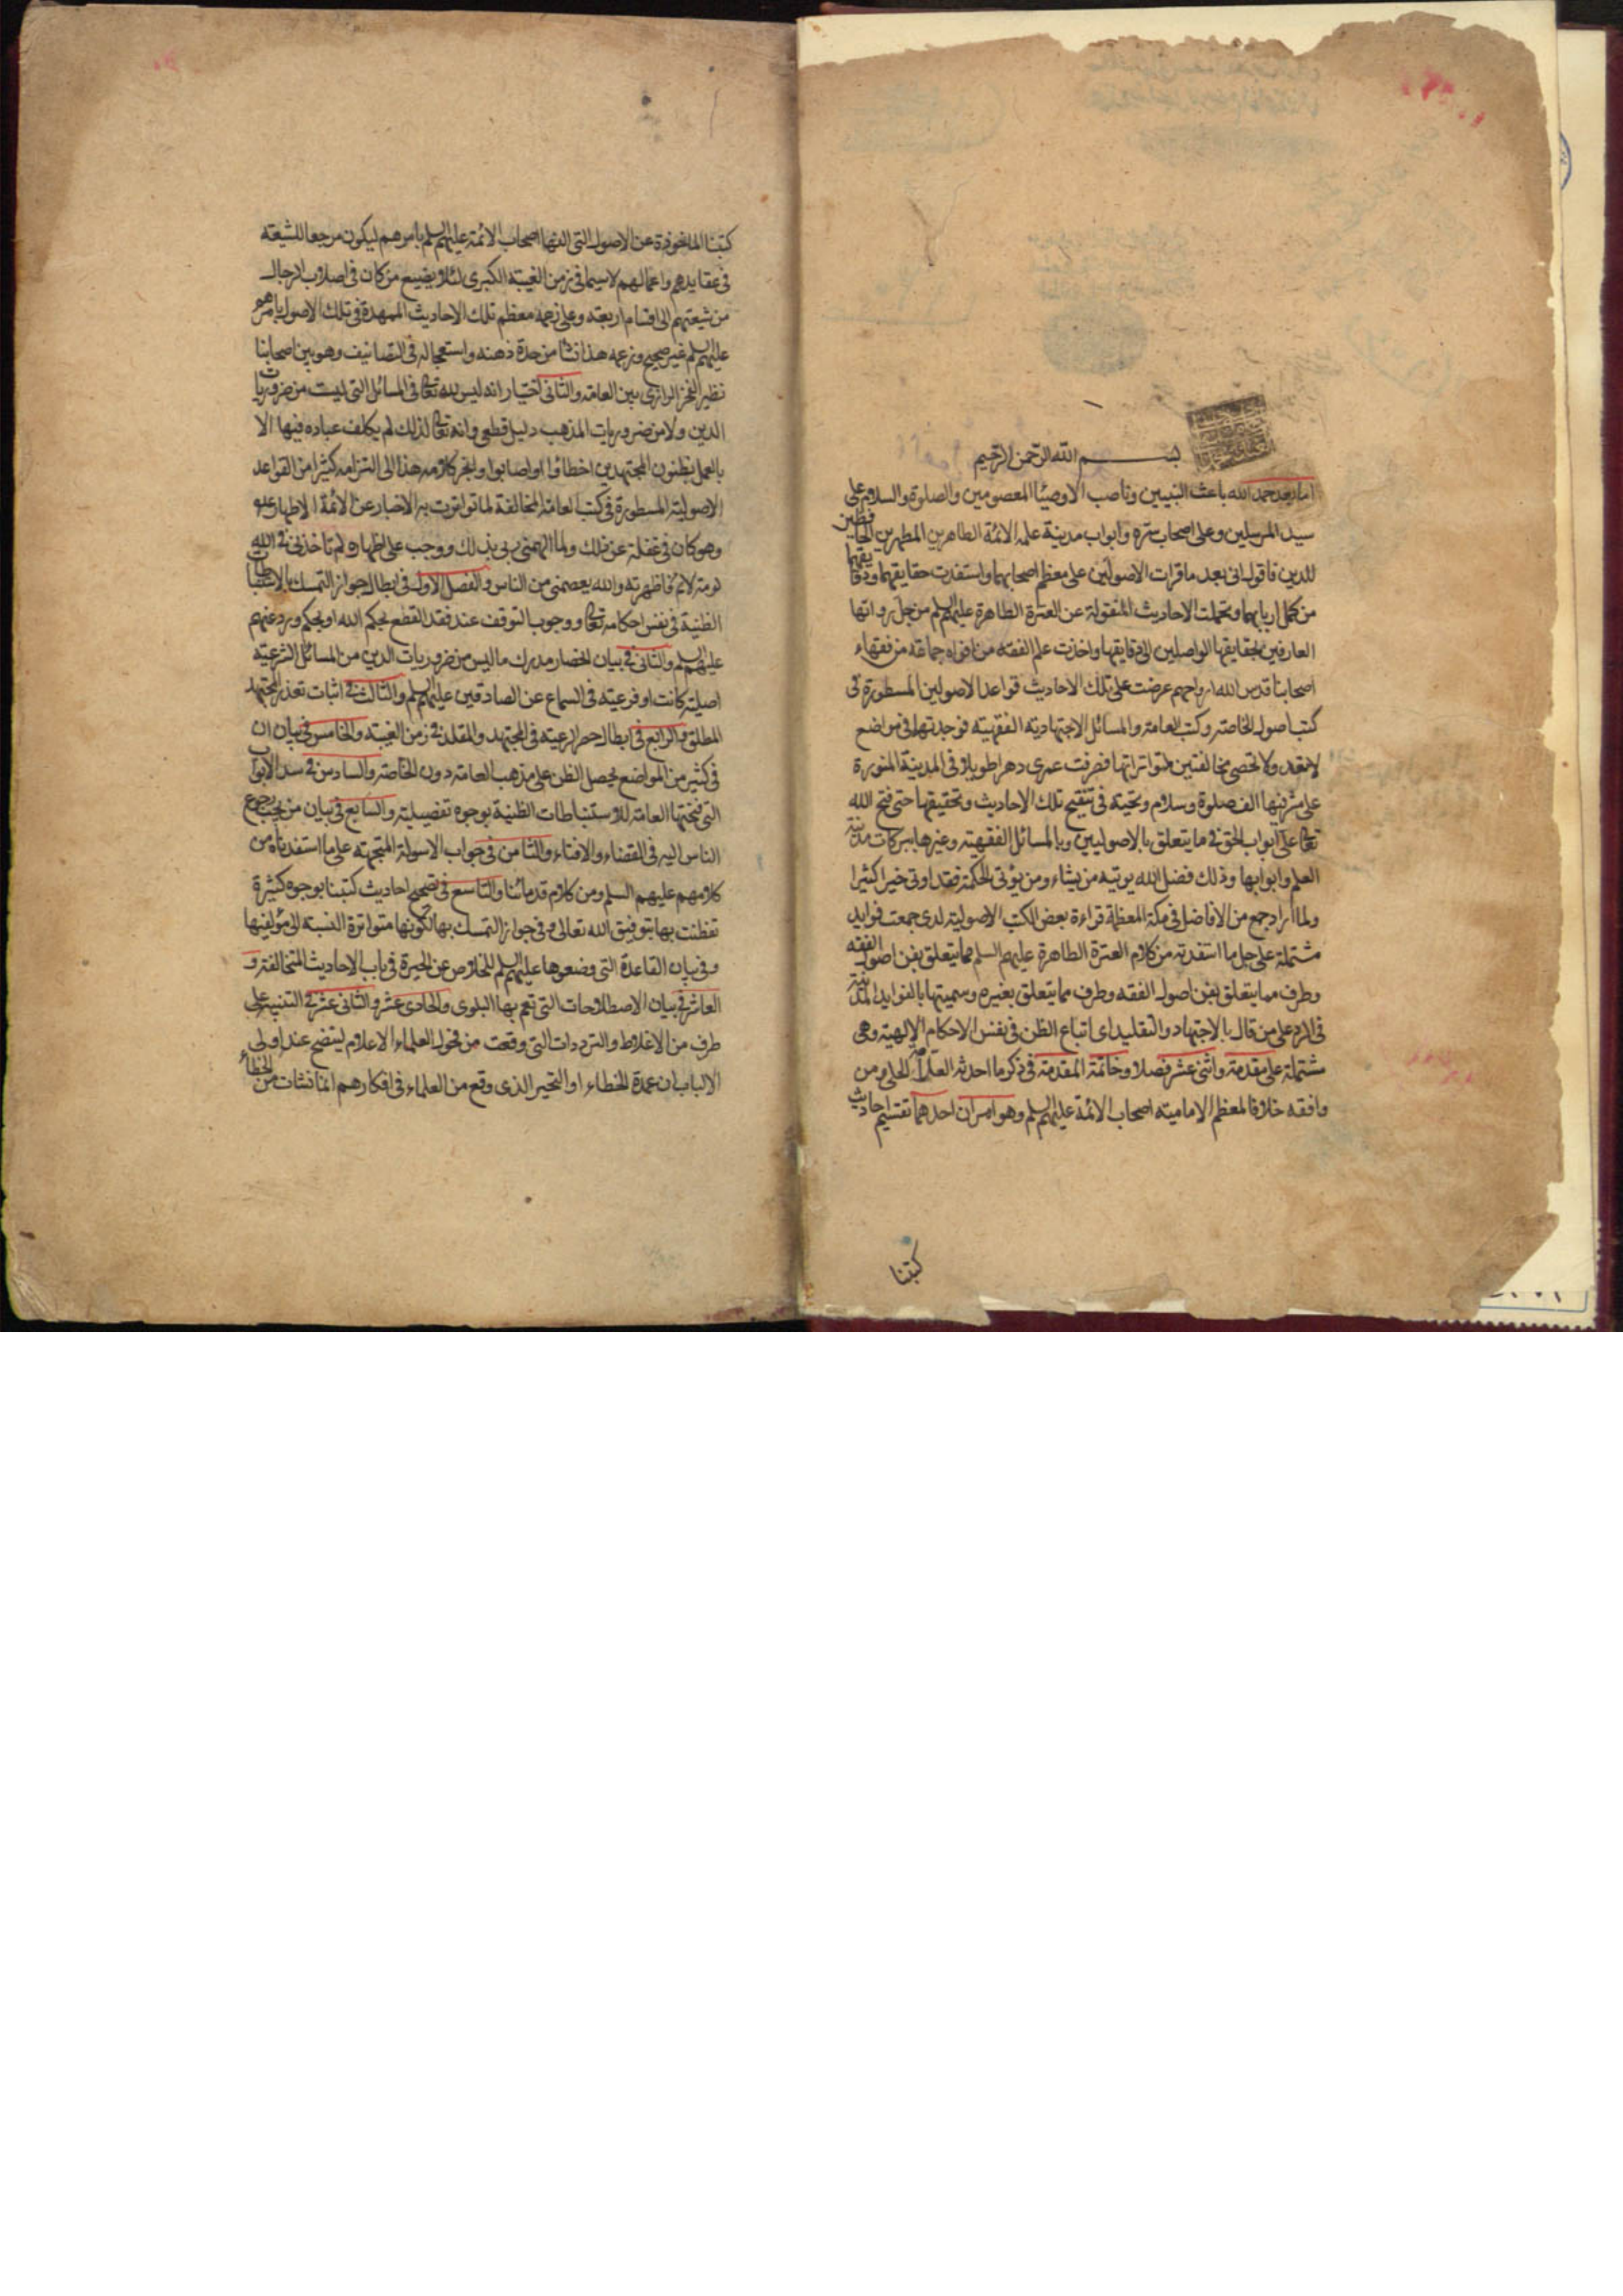 بسم الله الرحمن الرحيم
اما بعد حمد الله باعث النبيين وناصب الاوصيا المعصومين والصلوة والسلام على
سيد المرسلين وعلى اصحاب سره وابواب مدينة علمه الائمة الطاهرين المطهرين الحافظين
للدين فاقول انى بعد ما قرات الاصولين على معظم اصحابهما واستفدت حقايقهما ودقايقهما
من كمل اربابهما وتحملت الاحاديث المنقولة عن العترة الطاهرة عليهم السلم من جل رواتها
العارفين بحقايقها الواصلين الى دقايقها واخذت علم الفقه من افواه جماعة من فقهاء
اصحابنا قدس الله ارواحهم عرضت على تلك الاحاديث قواعد الاصولين المسطورة فى
كتب اصول الخاصة وكتب العامة والمسائل الاجتهادية الفقهية فوجدتها فى مواضع
لا تعد ولا تحصى مخالفتين لمتواتراتها فصرفت عمرى دهرا طويلا فى المدينة المنورة
على مشرفها الف صلوة وسلام وتحية فى تنقيح تلك الاحاديث وتحقيقها حتى فتح الله
تعا على ابواب الحق فى ما يتعلق بالاصوليين وبالمسائل الفقهية وغيرها ببركات مدينة
العلم وابوابها وذلك فضل الله يوتيه من يشاء ومن يؤتى الحكمة فقد اوتى خيرا كثيرا
ولما اراد جمع من الافاضل فى مكة المعظمة قراءة بعض الكتب الاصولية لدى جمعت فوايد
مشتملة على جل ما استفدته من كلام العترة الطاهرة عليهم السلم مما يتعلق بفن اصول الفقه
وطرف مما يتعلق بفن اصول الفقه وطرف مما يتعلق بغيره وسميتها بالفوايد المدنية
فى الرد على من قال بالاجتهاد والتقليد اى اتباع الظن فى نفس الاحكام الالهية وهى
مشتملة على مقدمة واثنى عشر فصلا وخاتمة المقدمة فى ذكر ما احدثه العلامه الحلى ومن
وافقه خلافا لمعظم الامامية اصحاب الائمة عليهم السلم وهو امران احدهما تقسيم احاديث
كتبنا
كتبنا الماخوذة عن الاصول التى الفها اصحاب الائمة عليهم السلم بامرهم ليكون مرجعا للشيعة
فى عقايدهم واعمالهم لا سيما فى زمن الغيبة الكبرى لئلا يضيع من كان فى اصلاب الرجال
من شيعتهم الى اقسام اربعة وعلى زعمه معظم تلك الاحاديث الممهدة فى تلك الاصول بامرهم
عليهم السلم غير صحيح وزعمه هذا نشا من حدة ذهنه واستعجاله فى التصانيف وهو بين اصحابنا
نظير الفخر الرازى بين العامة والثانى اختيار انه ليس لله تعا فى المسائل التى ليست من ضروريات
الدين ولا من ضروريات المذهب دليل قطعى وانه تعا لذلك لم يكلف عباده فيها الا
بالعمل بظنون المجتهدين اخطاؤا او اصابوا وانجر كلامه هذا الى التزامه كثيرا من القواعد
الاصولية المسطورة فى كتب العامة المخالفة لما تواترت به الاخبار عن الائمة الاطهار
وهو كان فى غفلة عن ذلك ولما الهمنى ربى بذلك ووجب على اظهاره لم تاخذنى فى الله
لومة لائم فاظهرته والله يعصمنى من الناس والفصل الاول فى ابطال جواز التمسك بالاستنباطات
الظنية فى نفس احكامه تعا ووجوب التوقف عند فقد القطع بحكم الله او بحكم ورد عنهم
عليهم السلم والثانى فى بيان انحصار مدرك ما ليس من ضروريات الدين من المسائل الشرعية
اصلية كانت او فرعية فى السماع عن الصادقين عليهم السلم والثالث فى اثبات تعذر المجتهد
المطلق والرابع فى ابطال حصر الرعية فى المجتهد والمقلد فى زمن الغيبة والخامس فى بيان ان
فى كثير من المواضع يحصل الظن على مذهب العامة دون الخاصة والسادس فى سد الابواب
التى فتحتها العامة للاستنباطات الظنية بوجوه تفصيلية والسابع فى بيان من يجب رجوع
الناس اليه فى القضاء والافتاء والثامن فى جواب الاسولة المتجهة على ما استفدناه من
كلامهم عليهم السلم ومن كلام قدمائنا والتاسع فى تصحيح احاديث كتبنا بوجوه كثيرة
تفطنت بها بتوفيق الله تعالى وفى جواز التمسك بها لكونها متواترة النسبة الى مؤلفيها
وفى بيان القاعدة التى وضعوها عليهم السلم للخلاص عن الحيرة فى باب الاحاديث المتخالفة و
العاشر فى بيان الاصطلاحات التى تعم بها البلوى والحادى عشر والثانى عشر فى التنبيه على
طرف من الاغلاط والترددات التى وقعت من فحول العلماء الاعلام ليتضح عند اولى
الالباب ان عمدة الخطاء او التحير الذى وقع من العلماء فى افكارهم انما نشات من الخطاء